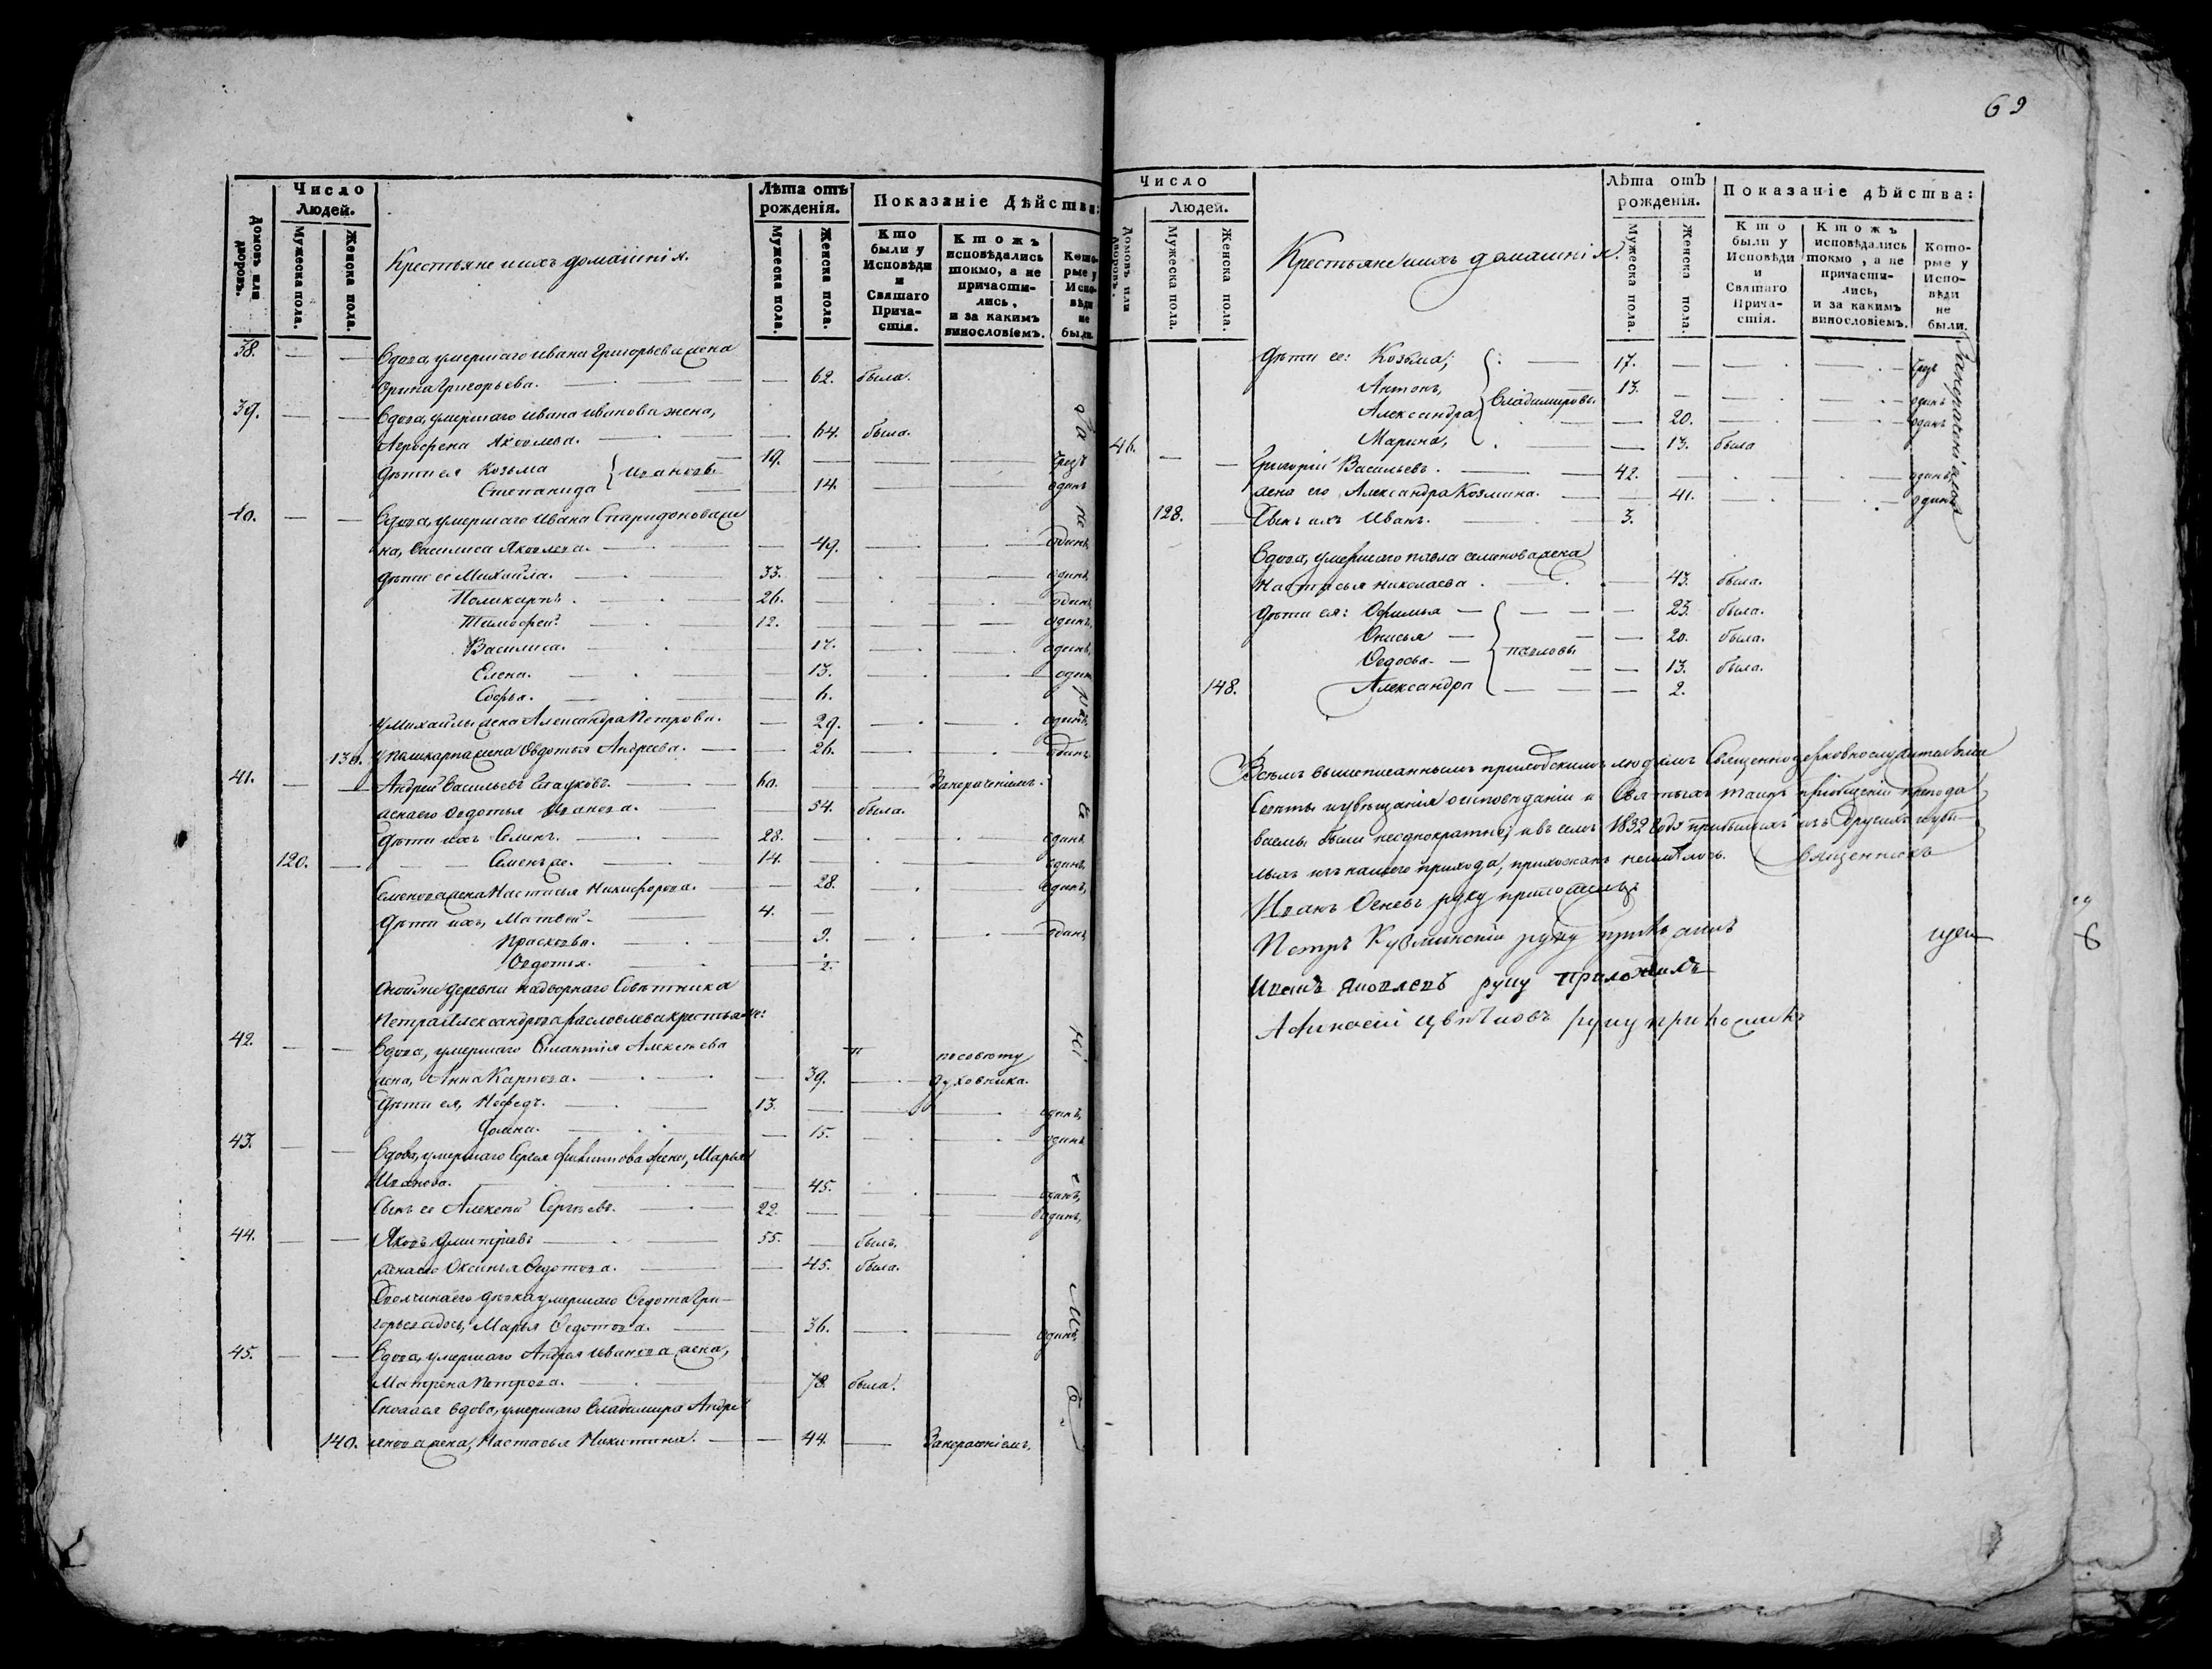 Число
Людей.
Домовъ или дворовъ.
Мужеска пола.
Женска пола.
Крестьяне и ихъ домашнія.
Лѣта отъ рожденія.
Мужеска пола.
Женска пола.
Показаніе Дѣйства:
Кто были у Исповѣди и Святаго Причастія.
Ктожъ исповѣдались токмо, а не причастились, и за какимъ винословіемъ.
Которые у Исповѣди не были.
38. — — Вдова, умершаго Ивана Григорьева жена
Орина Григорьева. — — 62. была.
39. — — Вдова, умершаго Ивана Иванова жена,
Агрофена Яковлева. — — 64. была.
Дѣти ея Козьма } Ивановы 19. — — — чрезъ
Степанида — 14. — — одинъ
40. — — Вдова, умершаго Ивана Спаридонова же
на, Василиса Яковлева. — — 49. — — одинъ
Дѣти ее Михайла. — 33. — — одинъ,
Поликарпъ. — 26. — — одинъ,
Тимофей. — 12. — — одинъ,
Василиса. — — 17. — — одинъ,
Елена. — — 13. — — один
Софья. — — 6.
У Михайлы жена Александра Петрова. — 29. — — одинъ,
130. У Поликарпа жена Овдотья Андреева. — — 26. — — одинъ
41. — — Андрей Васильевъ — 60. — Занерачѣніемъ.
жена его Ѳедотья Иванова. — 54. была.
Дѣти ихъ Семенъ. — 28. — — одинъ
120. — Семенъ же. — 14. — — одинъ,
Семенова жена Настасья Никифорова. — — 28. — — одинъ,
Дѣти ихъ, Матвей. — 4. —
Прасковья. — 9. — — одинъ,
Овдотья. — 2.
Оной же деревни надворнаго Совѣтника
Петра Александрова крестьяне:
42. — — Вдова, умершаго Алексѣева
жена, Анна Карпова. — — 39. — по совѣту духовника.
Дѣти ея, Нефедъ. — 13. — — одинъ,
Домна. — — 15. — — одинъ
43. — — Вдова, умершаго Сергея Филиппова жена, Марья
Иванова. — — 45. — — одинъ,
Сынъ ее Алексѣй Сергѣевъ. — 22. — — одинъ,
44. — — Яковъ Дмитріевъ — 55. — былъ.
жена его Оксинья Ѳедотова. — — 45. была.
умершаго Ѳедота Гри-
горьева дочь, Марья Ѳедотова. — — 36. — — одинъ,
45. — — Вдова, умершаго Андрея Иванова жена,
Матрена Петрова. — — 78. была.
Сноха ея вдова, умершаго Владимира Андре
140. янова жена, Настасья Никитина. — — 44. — Занераченіемъ.
69
Число
Людей.
Домовъ или дворовъ.
Мужеска пола.
Женска пола.
Крестьяне и ихъ домашнія.
Лѣта отъ рожденія.
Мужеска пола.
Женска пола.
Показаніе дѣйства:
Кто были у Исповѣди и Святаго Причастія.
Ктожъ исповѣдались токмо, а не причастились, и за какимъ винословіемъ.
Которые у Исповѣди не были.
Дѣти ее: Козьма, — 17. — — чрезъ
Антонъ, } Владимировы. 13. — — одинъ
Александра — — 20. — — одинъ
Марина, — — 13. была
46. — — Григорій Васильевъ. — 42. — — одинъ,
жена его Александра Козмина. — — 41. — — одинъ
128. Сынъ ихъ Иванъ. — 3.
Вдова, умершаго Павла Семенова жена
Настасья Николаева. — — 43. была.
Дѣти ея: Офимья — — 23. была.
Онисья — } Павловы — 20. была.
Ѳедосья — — 13. была.
148. Александра — — 2.
Всѣмъ вышеписаннымъ приходскимъ людямъ Священноцерковнослужительми
увѣщанія о исповѣданіи и Святыхъ таинъ пріобщеніи препода
ваемы были неоднократно, и въ семъ 1832 годѣ прибылыхъ изъ другихъ и убы-
лыхъ изъ нашего прихода, прихожанъ неимѣлось. Священникъ
Иванъ руку приложилъ
Петръ Кузминскій руку приложилъ
Иванъ Яковлевъ руку приложилъ
Афанасій Цвѣтковъ руку приложилъ